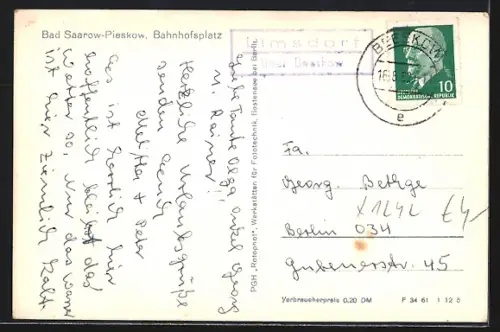 Bad Saarow-Pieskow, Bahnhofsplatz
Limsdorf
über Beeskow
BEESKOW
e
10
DEMOKRATISCHE REPUBLIK
Liebe Tante Olga, onkel Georg
u. Rainer!
Herzliche Urlaubsgrüße
senden Euch
Mutter + Peter
Es ist herrlich hier
hoffentlich bleibt das
Wetter so. Nur das wasser
ist hier ziemlich kalt
PGH „Rotophot", Werkstätten für Fototechnik, Bestensee bei Berlin
Fa.
Georg Bethge
x1242 £4/
Berlin 034
Gubenerstr. 45
Verbraucherpreis 0,20 DM F 34 61 1 12 5